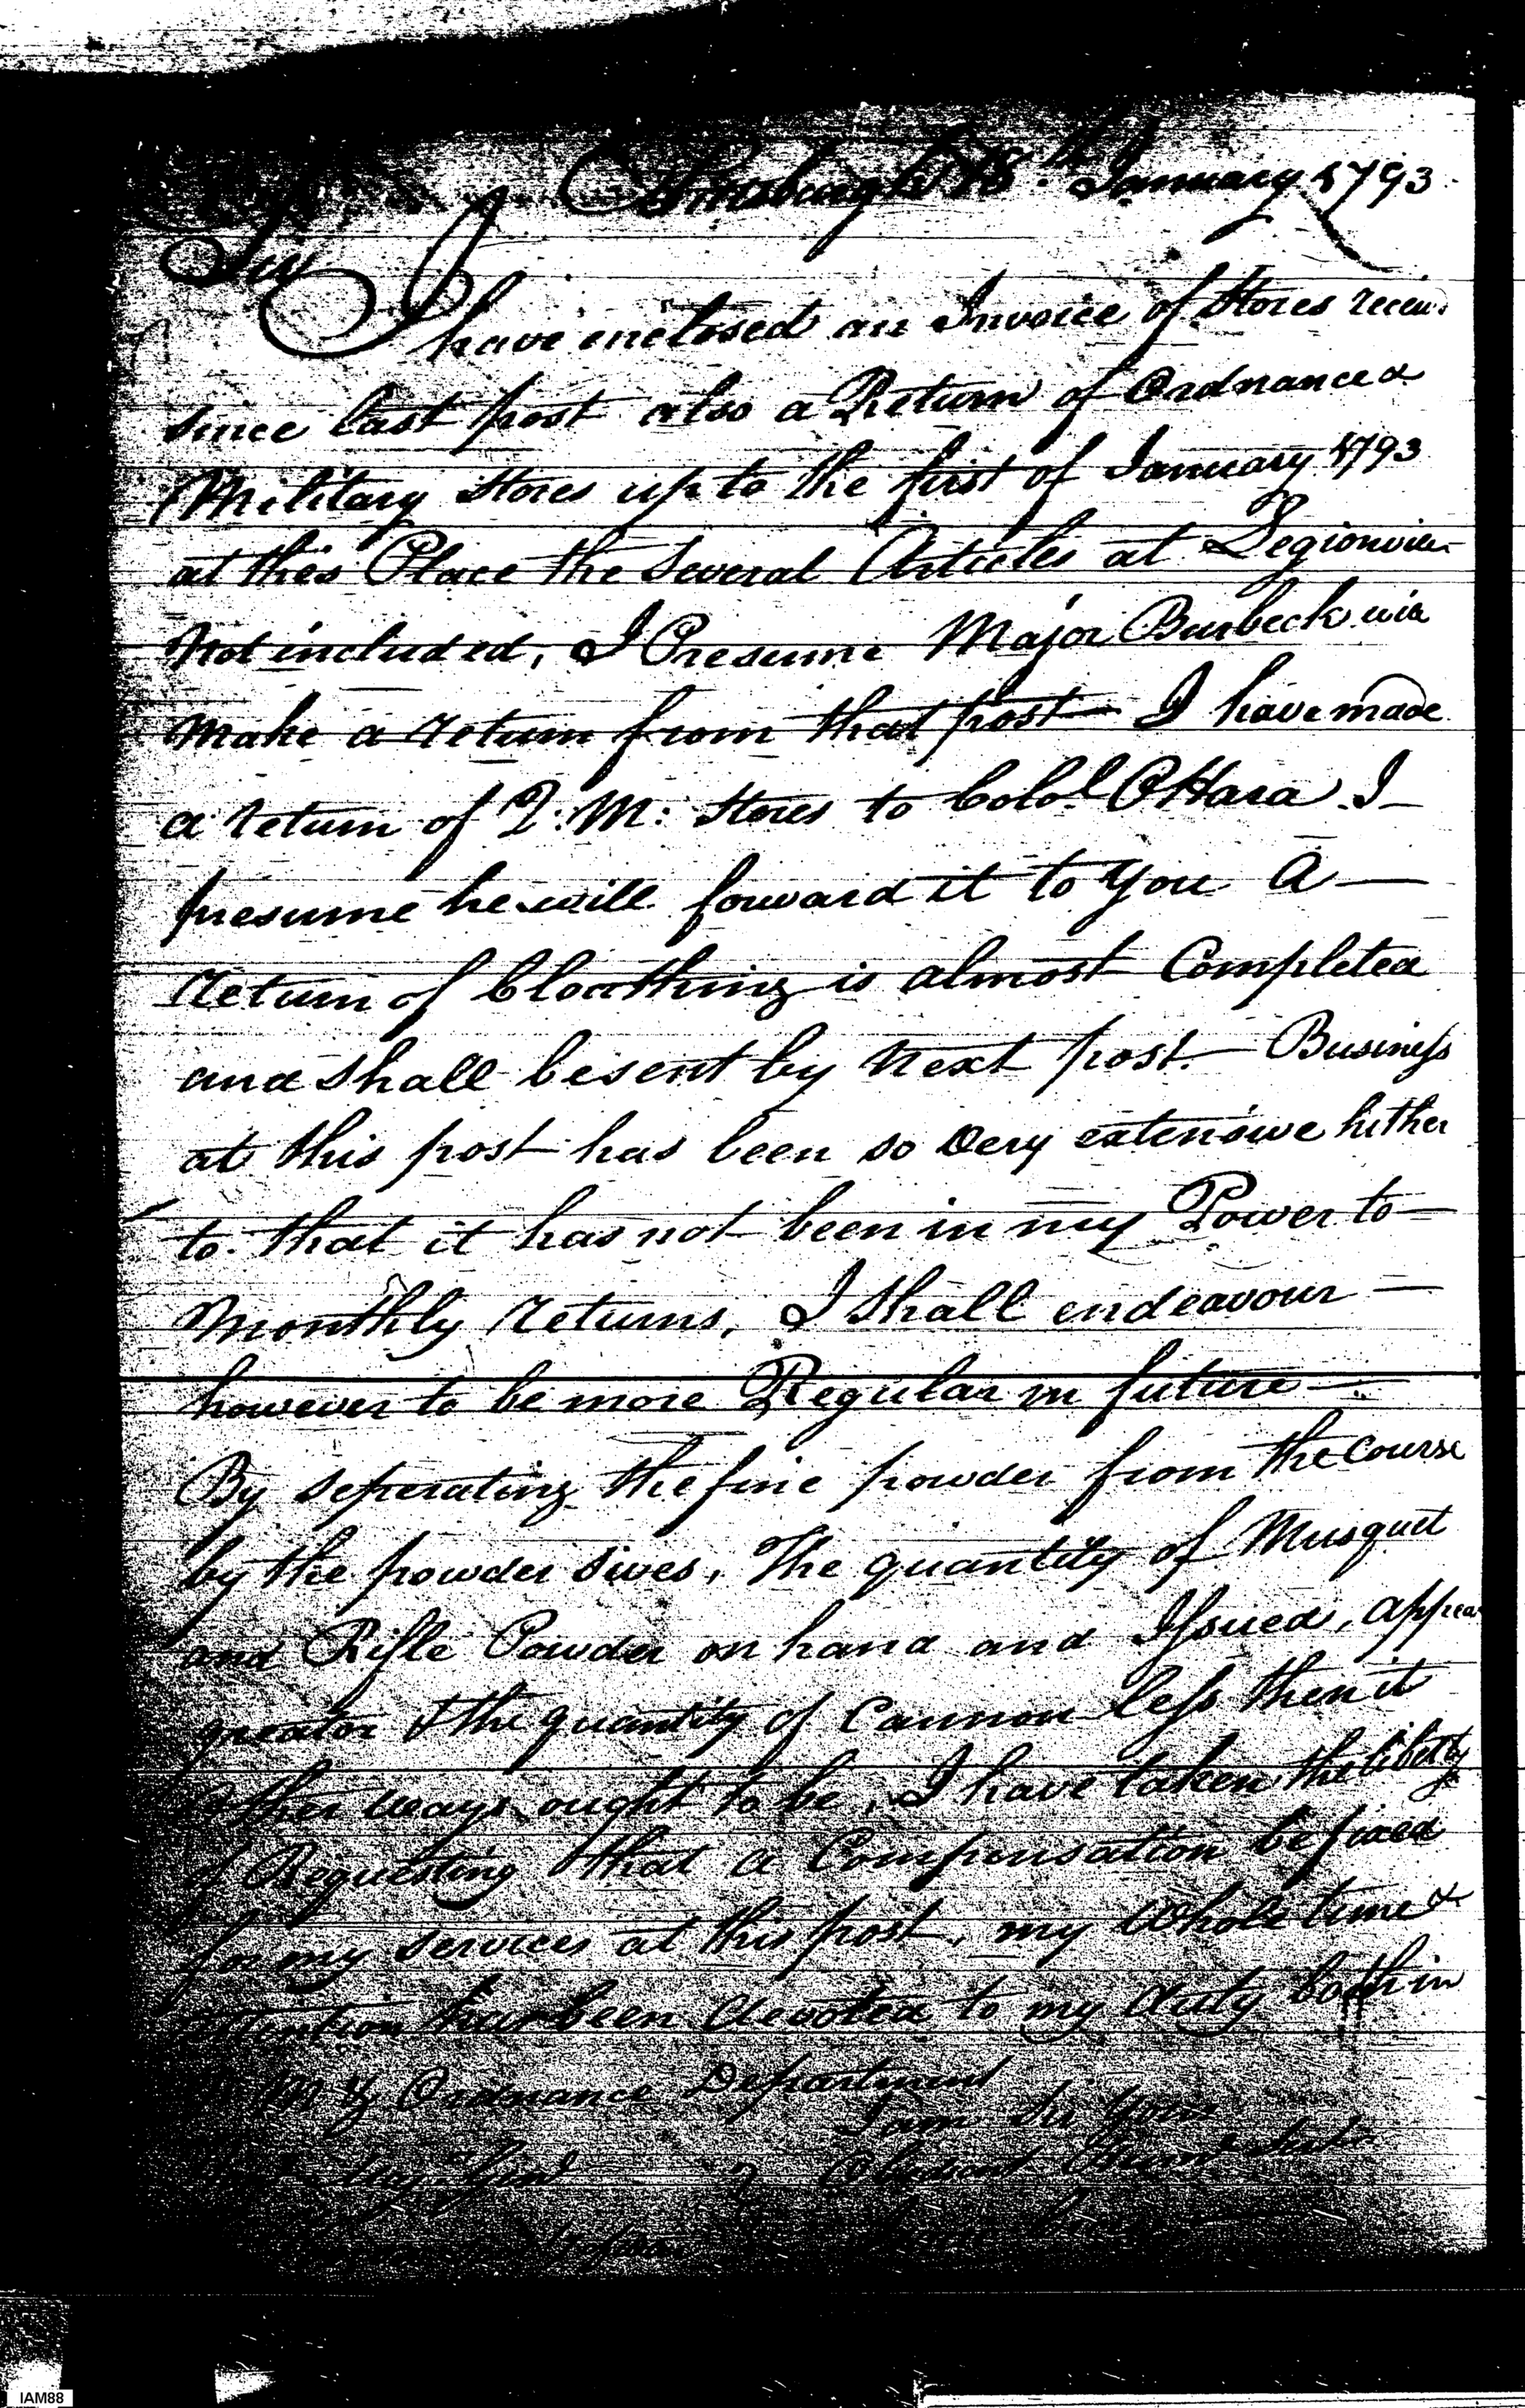 Pittsburgh 18th January 1793
Sir
I have enclosed an Invoice of Stores receiv.
since last post also a Return of Ordnance &
Military Stores up to the first of January 1793
at this Place the Several Articles at Legionville
Not included, I Presume Major Burbeck will
Make a return from that post — I have made
a return of Q: M: Stores to Colol. OHara I —
presume he will forward it to you A —
return of Cloathing is almost Completed
and shall be sent by next post. — Business
at this post has been so very extensive hither
to. that it has not been in my Power to —
Monthly returns, I shall endeavour —
however to be more Regular in future —
By seperating the fine powder from the course
by the powder sives, The quantity of Musquet
and Rifle Powder on hand and Issued, appear
greater & the quantity of Cannon less then it
other ways ought to be, I have taken the liberty
of Requesting that a Compensation be fixed
for my services at this post, my whole time &
attention has been devoted to my duty both in
M & Ordnance Department
I am Sir Your
Obedient Humb Servt
IAM88